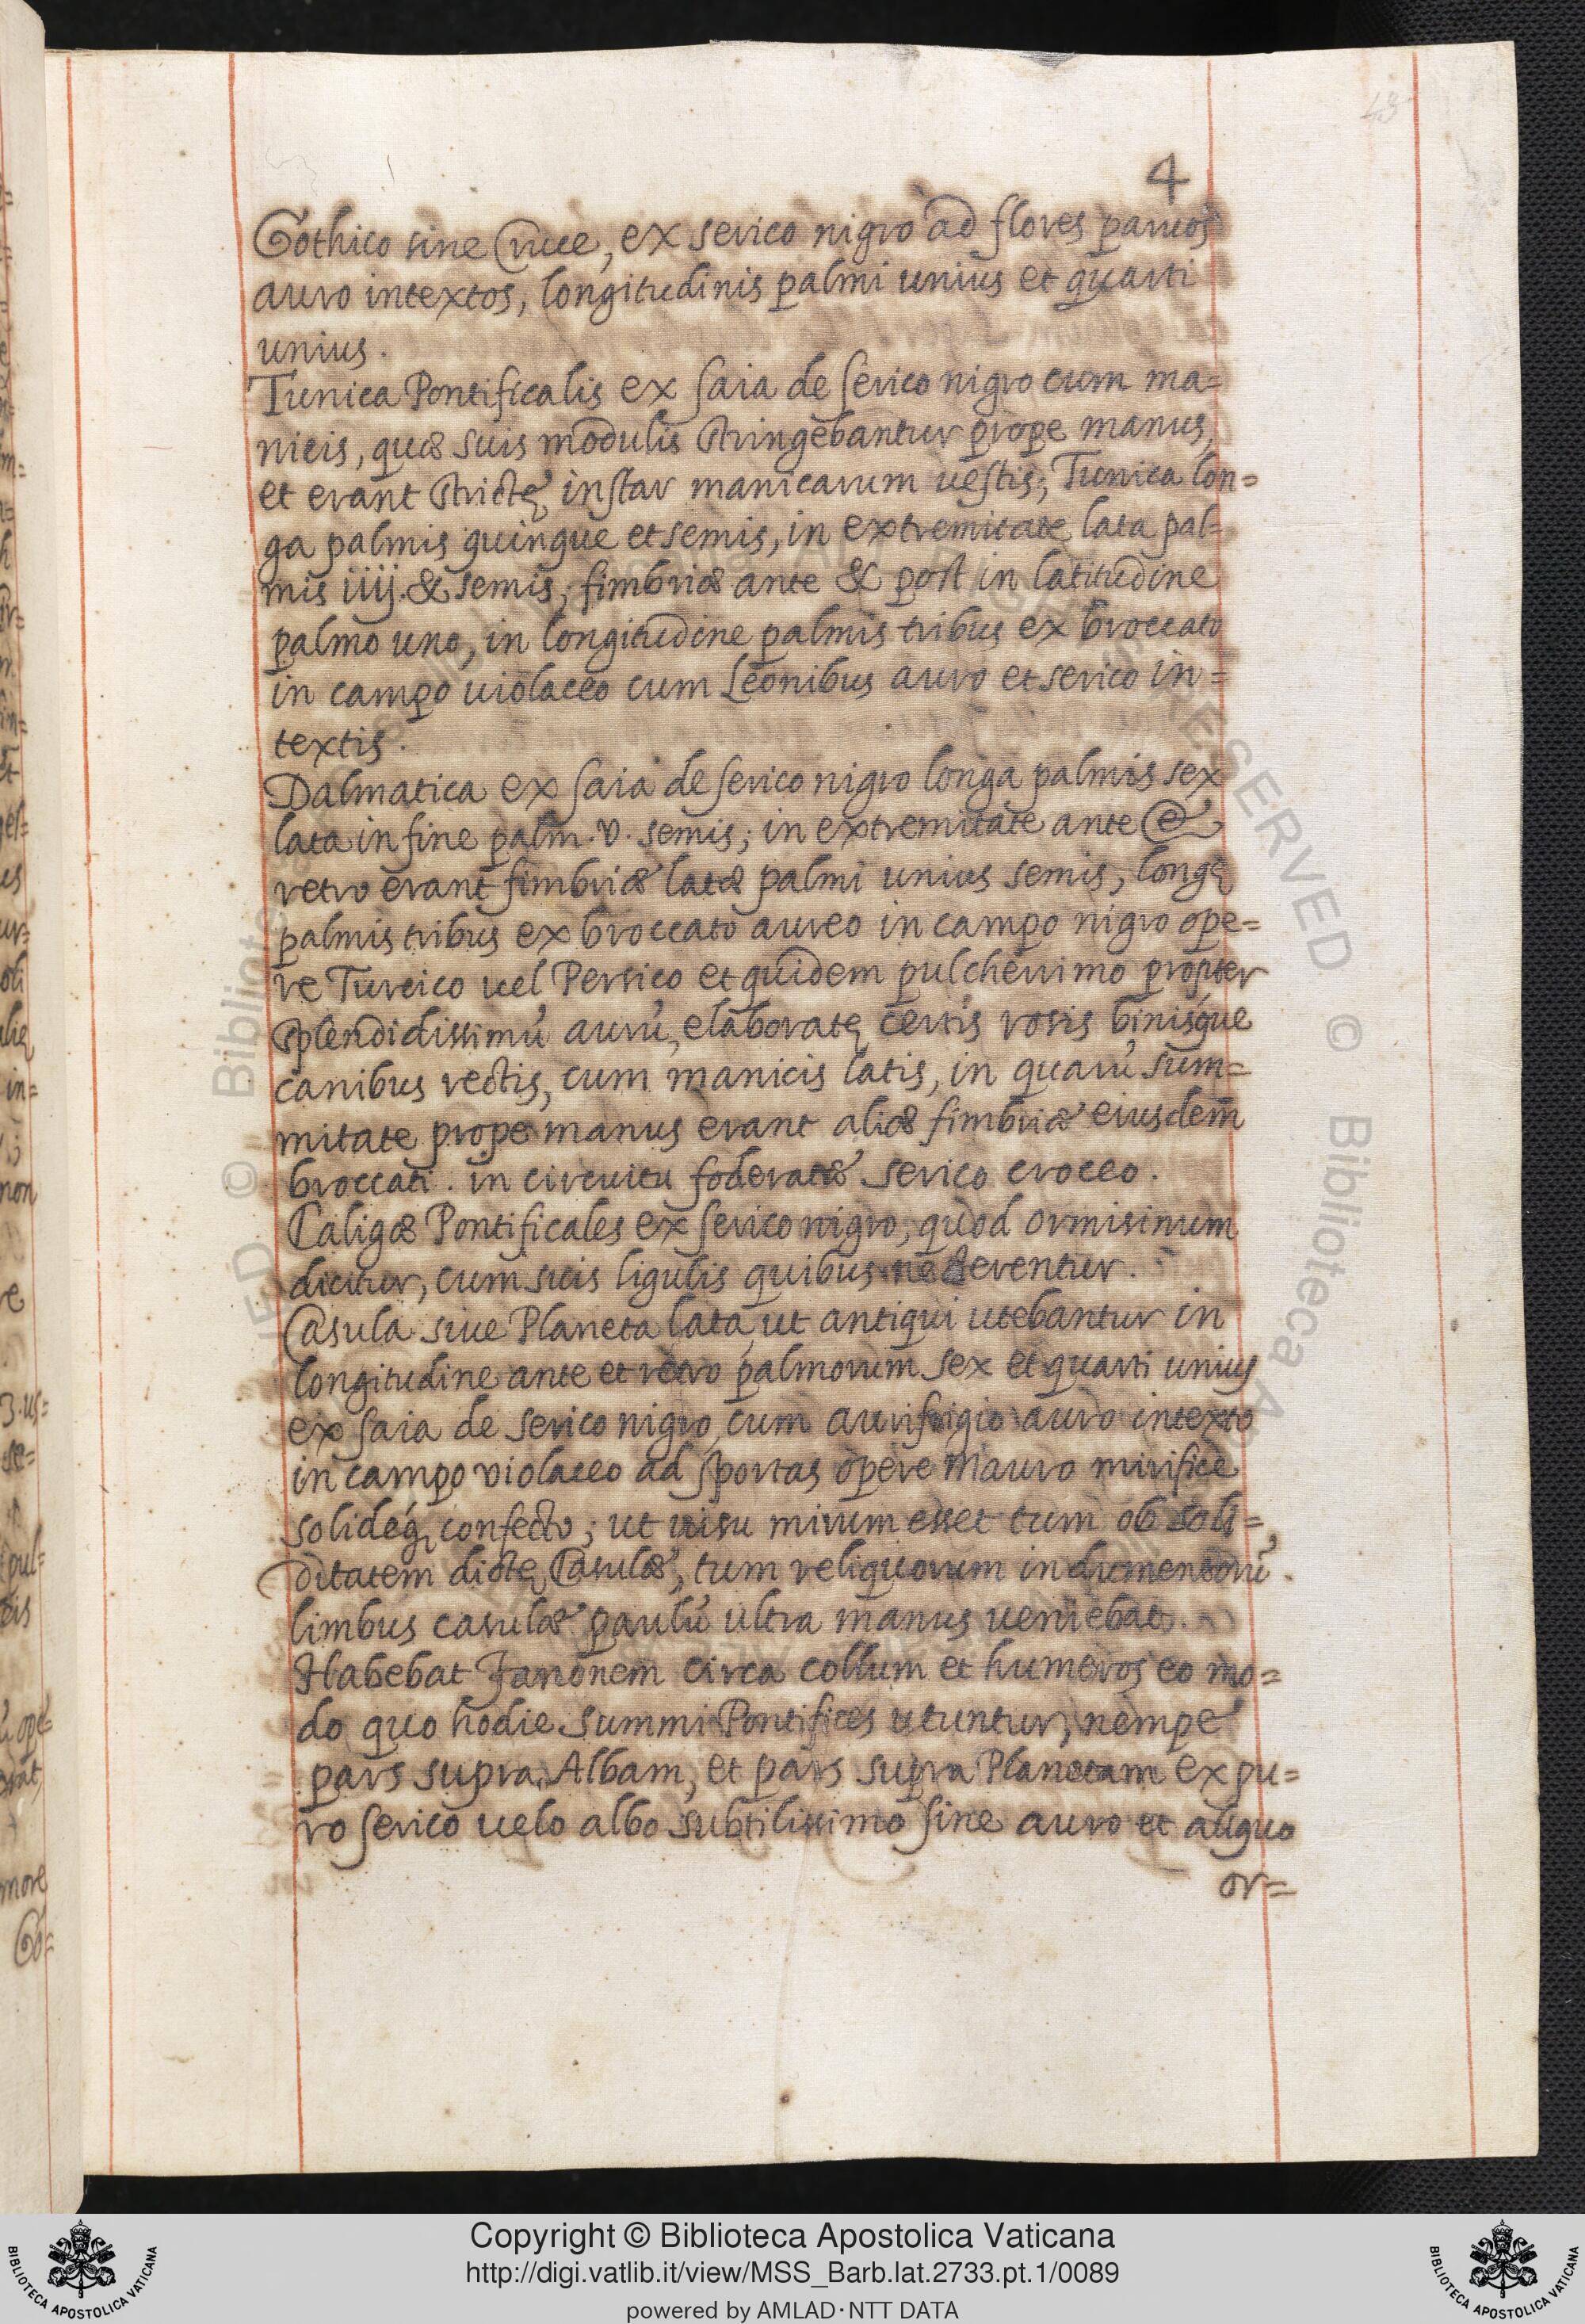 43
4
Gothico sine Cruce, ex serico nigro ad flores paruos
auro intextos, longitudinis palmi unius et quarti
unius.
Tunica Pontificalis ex saia de serico nigro cum ma=
nicis, quæ suis modulis stringebantur prope manus,
et erant strictę instar manicarum uestis; Tunica lon=
ga palmis quinque et semis, in extremitate lata pal=
mis iiij. & semis; fimbriæ ante & post in latitudine
palmo uno, in longitudine palmis tribus ex broccato
in campo uiolaceo cum Leonibus auro et serico in=
textis.
Dalmatica ex saia de serico nigro longa palmis sex
lata in fine palm. v. semis; in extremitate ante et
retro erant fimbriæ latæ palmi unius semis, longę
palmis tribus ex broccato aureo in campo nigro ope=
re Turcico uel Persico et quidem pulcherrimo propter
splendidissimũ aurũ, elaboratę certis rosis binisque
canibus rectis, cum manicis latis, in quarũ sum=
mitate prope manus erant aliæ fimbriæ eiusdem
broccati. in circuitu foderatæ serico croceo.
Caligæ Pontificales ex serico nigro, quod ormisinum
dicitur, cum suis ligulis quibus necterentur.
Casula siue Planeta lata, ut antiqui utebantur in
longitudine ante et retro palmorum sex et quarti unius
ex saia de serico nigro, cum aurifrigio auro intexto
in campo violaceo ad portas opere Mauro mirifice
solideq; confecto; ut uisu mirum esset tum ob soli=
ditatem dictę Casulæ, tum reliquorum indumentorũ.
limbus casulæ paulũ ultra manus ueniebat.
Habebat Fanonem circa collum et humeros eo mo=
do quo hodie summi Pontifices utuntur, nempe
pars supra Albam, et pars supra Planetam ex pu=
ro serico uelo albo subtilissimo sine auro et aliquo
or=
Copyright © Biblioteca Apostolica Vaticana
http://digi.vatlib.it/view/MSS_Barb.lat.2733.pt.1/0089
powered by AMLAD·NTT DATA
BIBLIOTECA APOSTOLICA VATICANA
BIBLIOTECA APOSTOLICA VATICANA